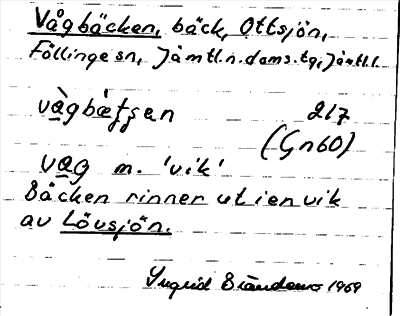 Vågbäcken, bäck, Ottsjön,
Föllinge sn, Jämtl.n.doms.tg, Jämtl.l.
vàgbètſen 217
(Gn60)
vag m. 'vik'
Bäcken rinner ut i en vik
av Lövsjön.
Ingrid 1969